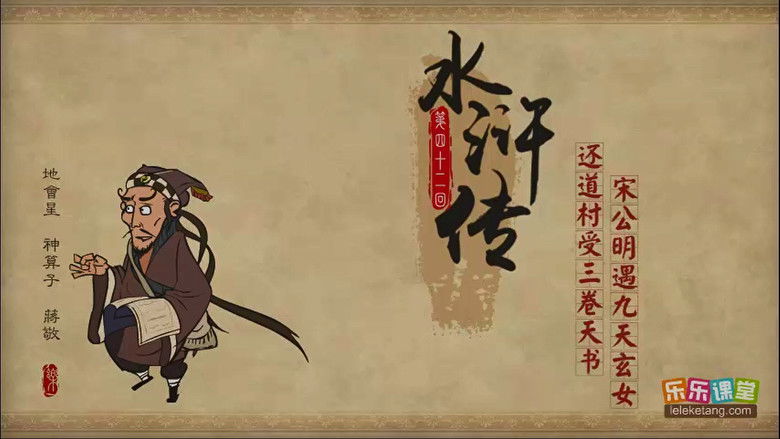 水浒传
第四十二回
宋公明遇九天玄女
还道村受三卷天书
地會星 神算子 蔣敬
乐乐课堂
leleketang.com